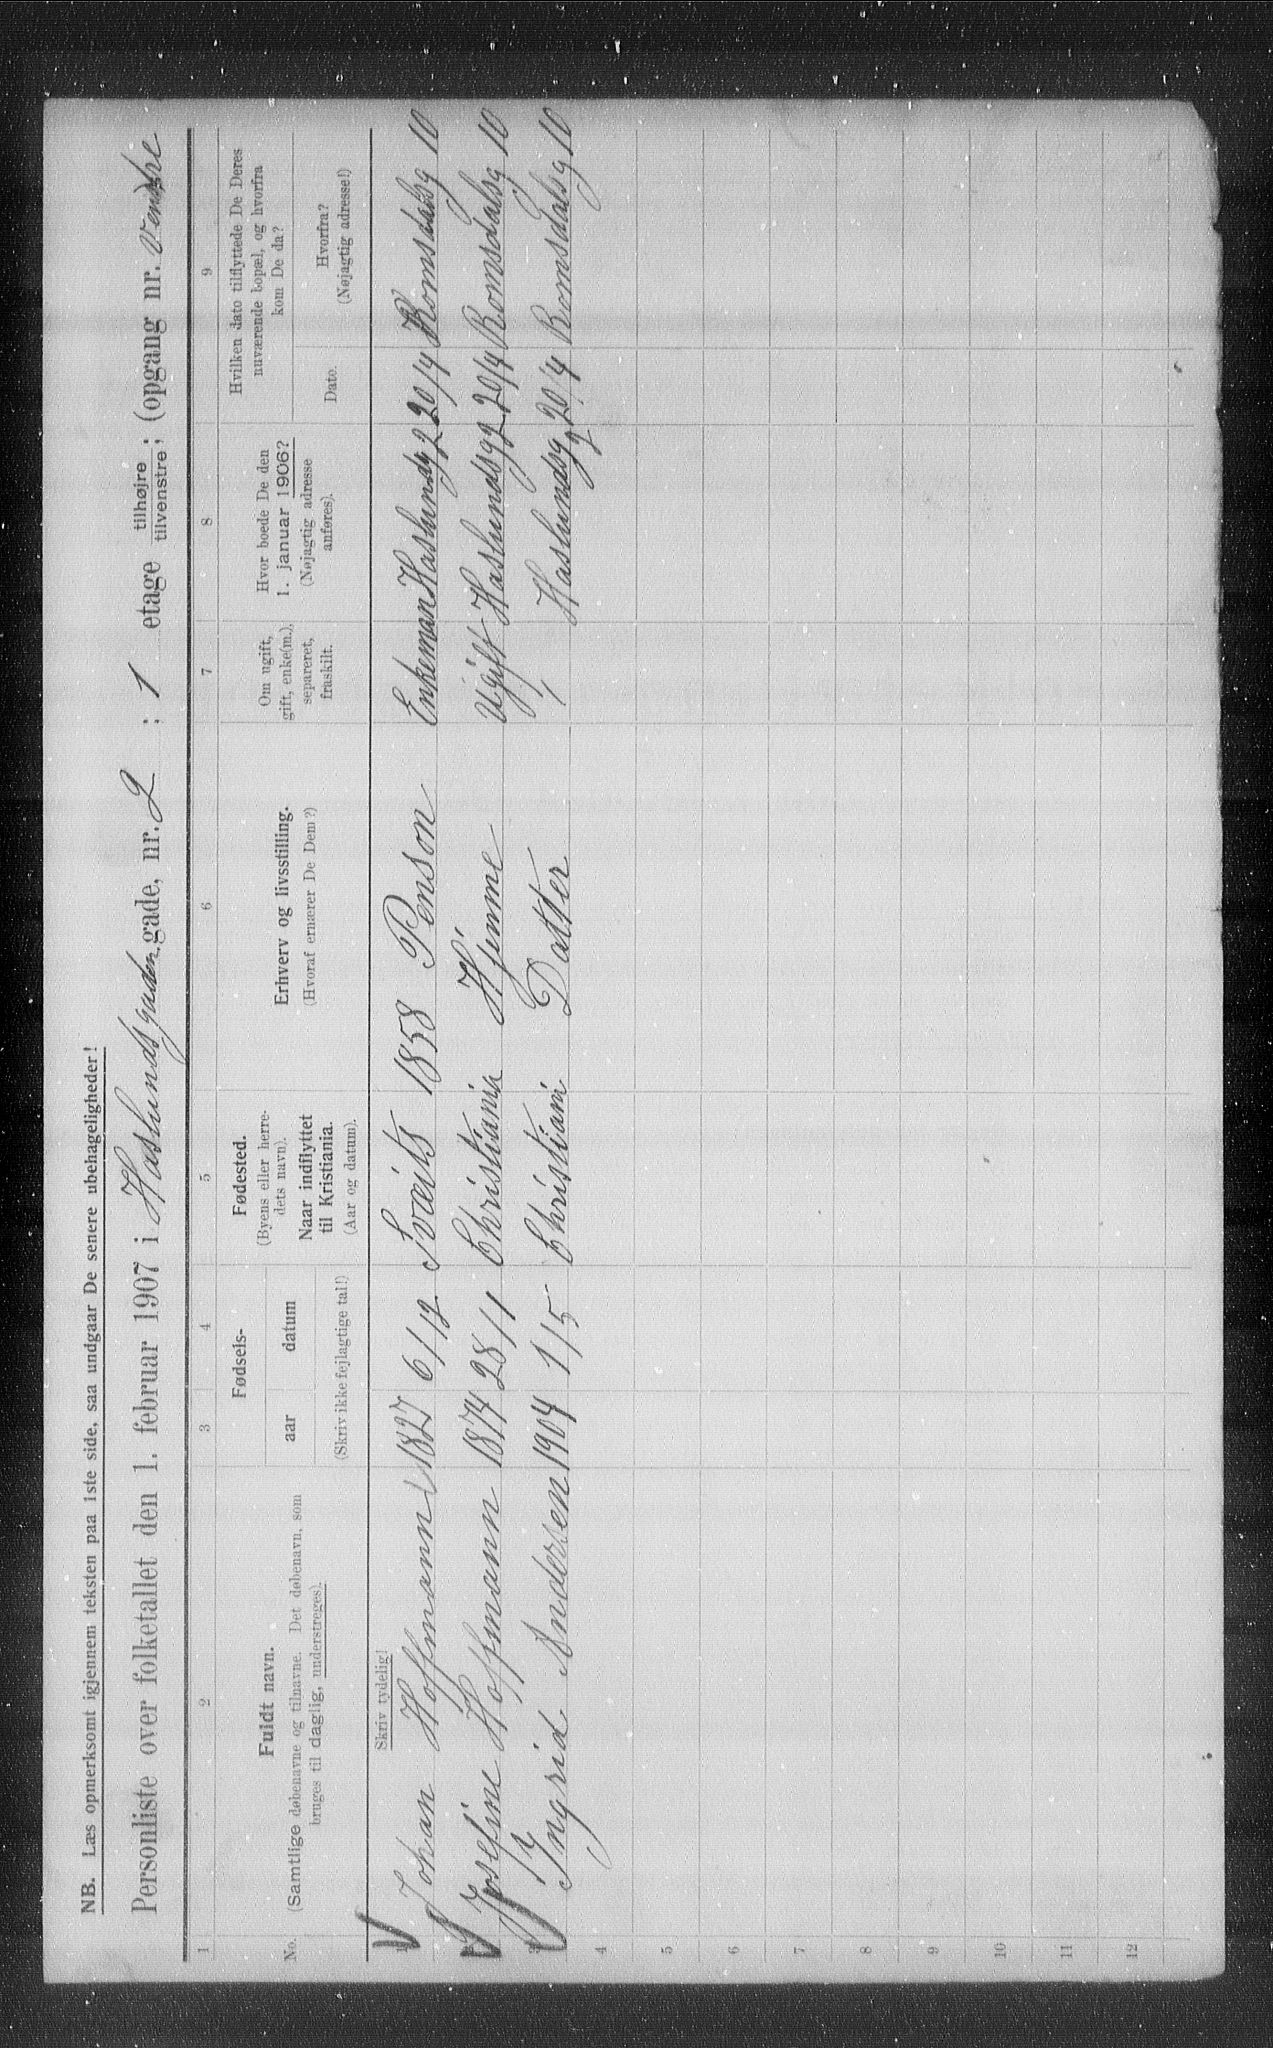 NB. Læs opmerksomt igjennem teksten paa 1ste side, saa undgaar De senere ubehageligheder!
Personliste over folketallet den 1. februar 1907 i Haslundsgaden gade, nr. 2 ; 1 etage tilhøjre tilvenstre; (opgang nr. Venstre
1 2 3 4 5 6 7 8 9
No.
Fuldt navn.
(Samtlige døbenavne og tilnavne. Det døbenavn, som
bruges til daglig, understreges).
Fødsels-
aar datum
(Skriv ikke fejlagtige tal!)
Fødested.
(Byens eller herre-
dets navn).
Naar indflyttet
til Kristiania.
(Aar og datum).
Erhverv og livsstilling.
(Hvoraf ernærer De Dem?)
Om ugift,
gift, enke(m.),
separeret,
fraskilt.
Hvor boede De den
1. januar 1906?
(Nøjagtig adresse
anføres).
Hvilken dato tilflyttede De Deres
nuværende bopæl, og hvorfra
kom De da?
Dato.
Hvorfra?
(Nøjagtig adresse!)
Skriv tydelig!
1 Johan Hoffmann 1827 6/12 Sveits 1858 Penson Enkeman Haslundg 2 20/4 Romsdalsg 10
2 Josefine Hoffmann 1874 28/1 Christiania Hjemme Ugift Haslundsg 2 20/4 Romsdalsg 10
3 Ingrid Andersen 1904 1/5 Christiani Datter / Haslundsg 2 20/4 Romsdalsg 10
4
5
6
7
8
9
10
11
12